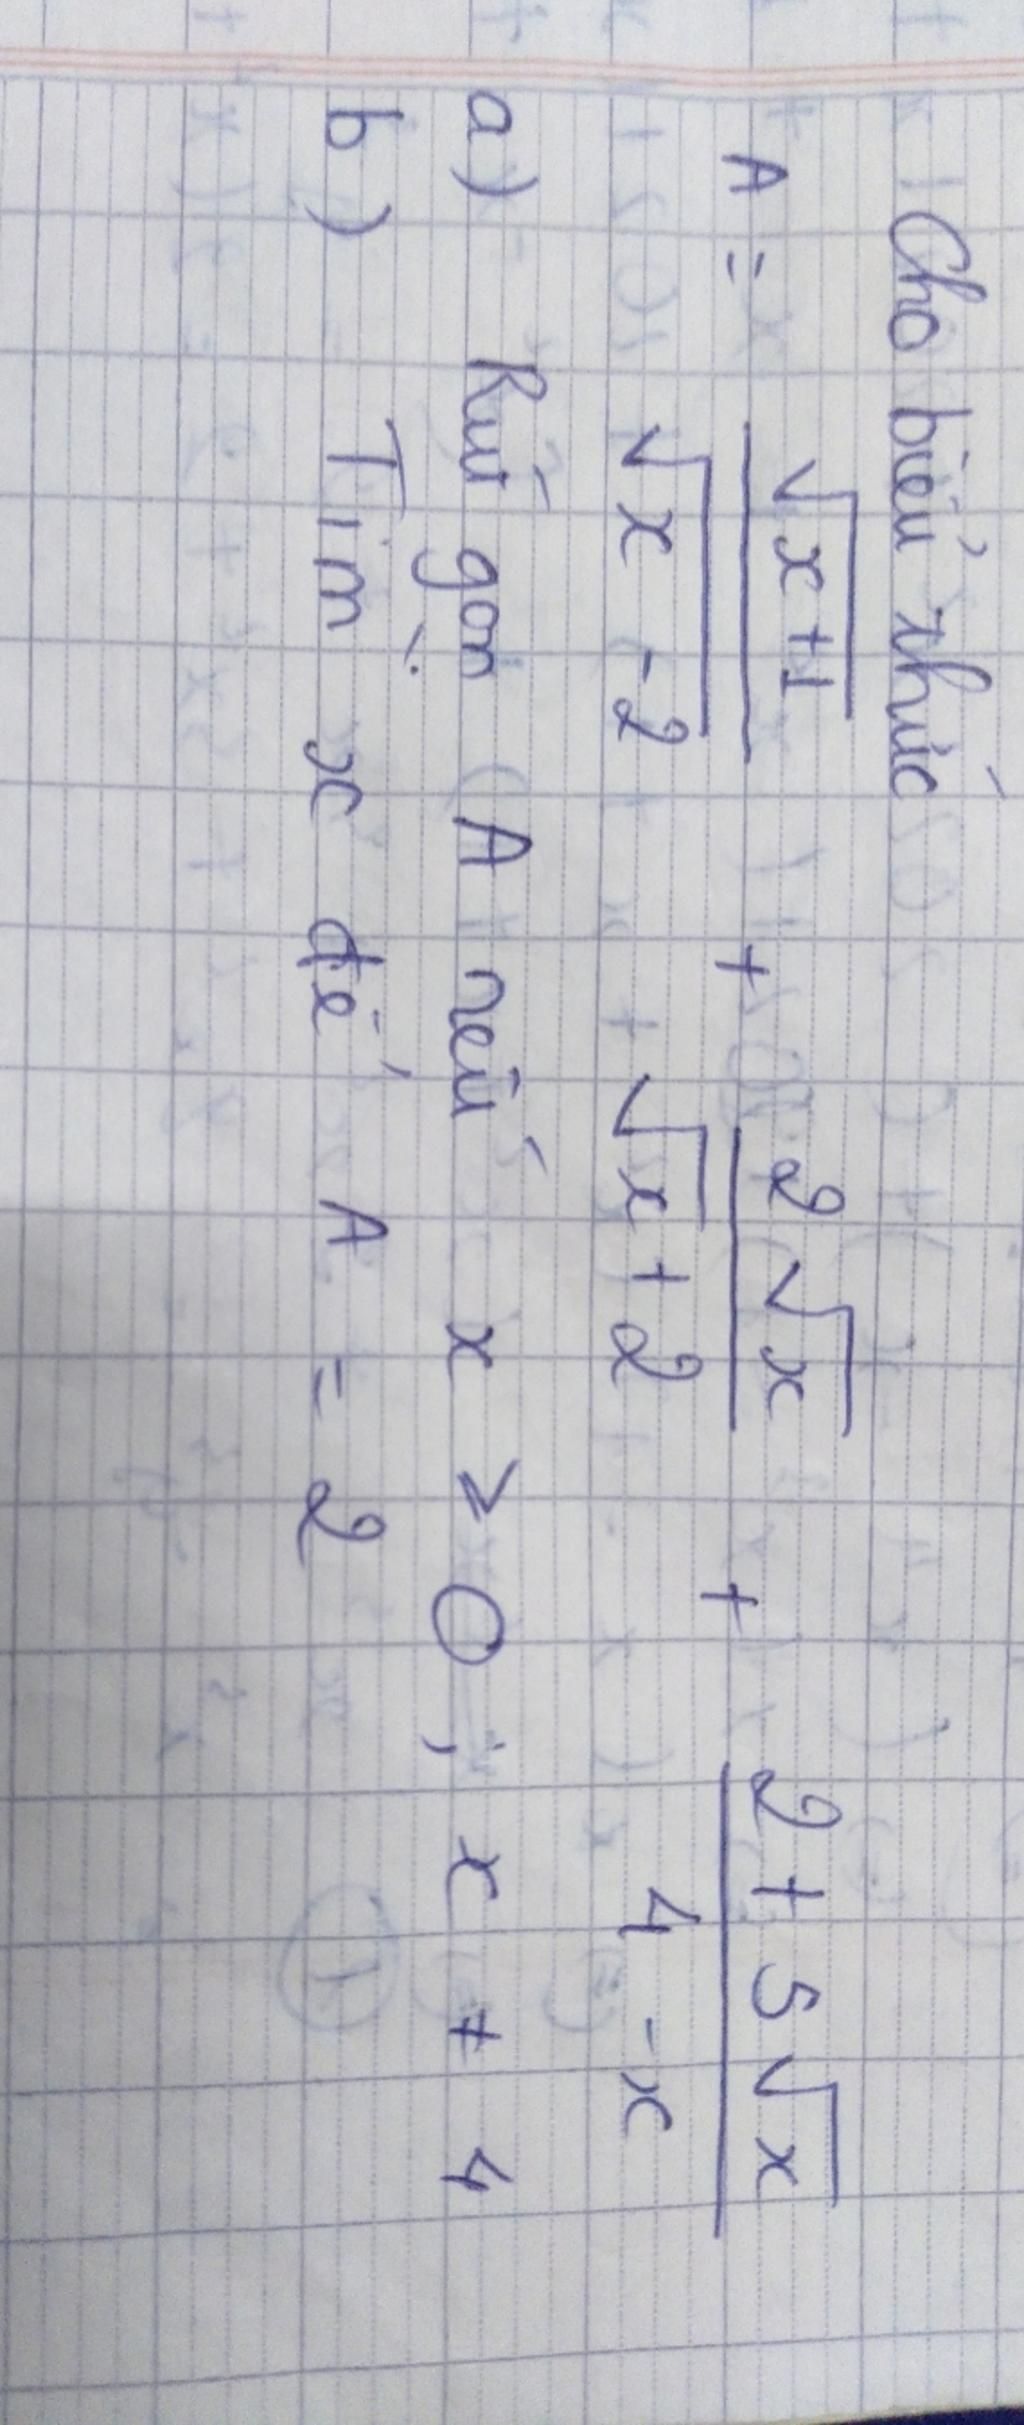 Cho biểu thức
A = \frac{\sqrt{x+1}}{\sqrt{x-2}} + \frac{2\sqrt{x}}{\sqrt{x}+2} + \frac{2+5\sqrt{x}}{4-x}
a) Rút gọn A nếu x ≥ 0, x ≠ 4
b) Tìm x để A = 2